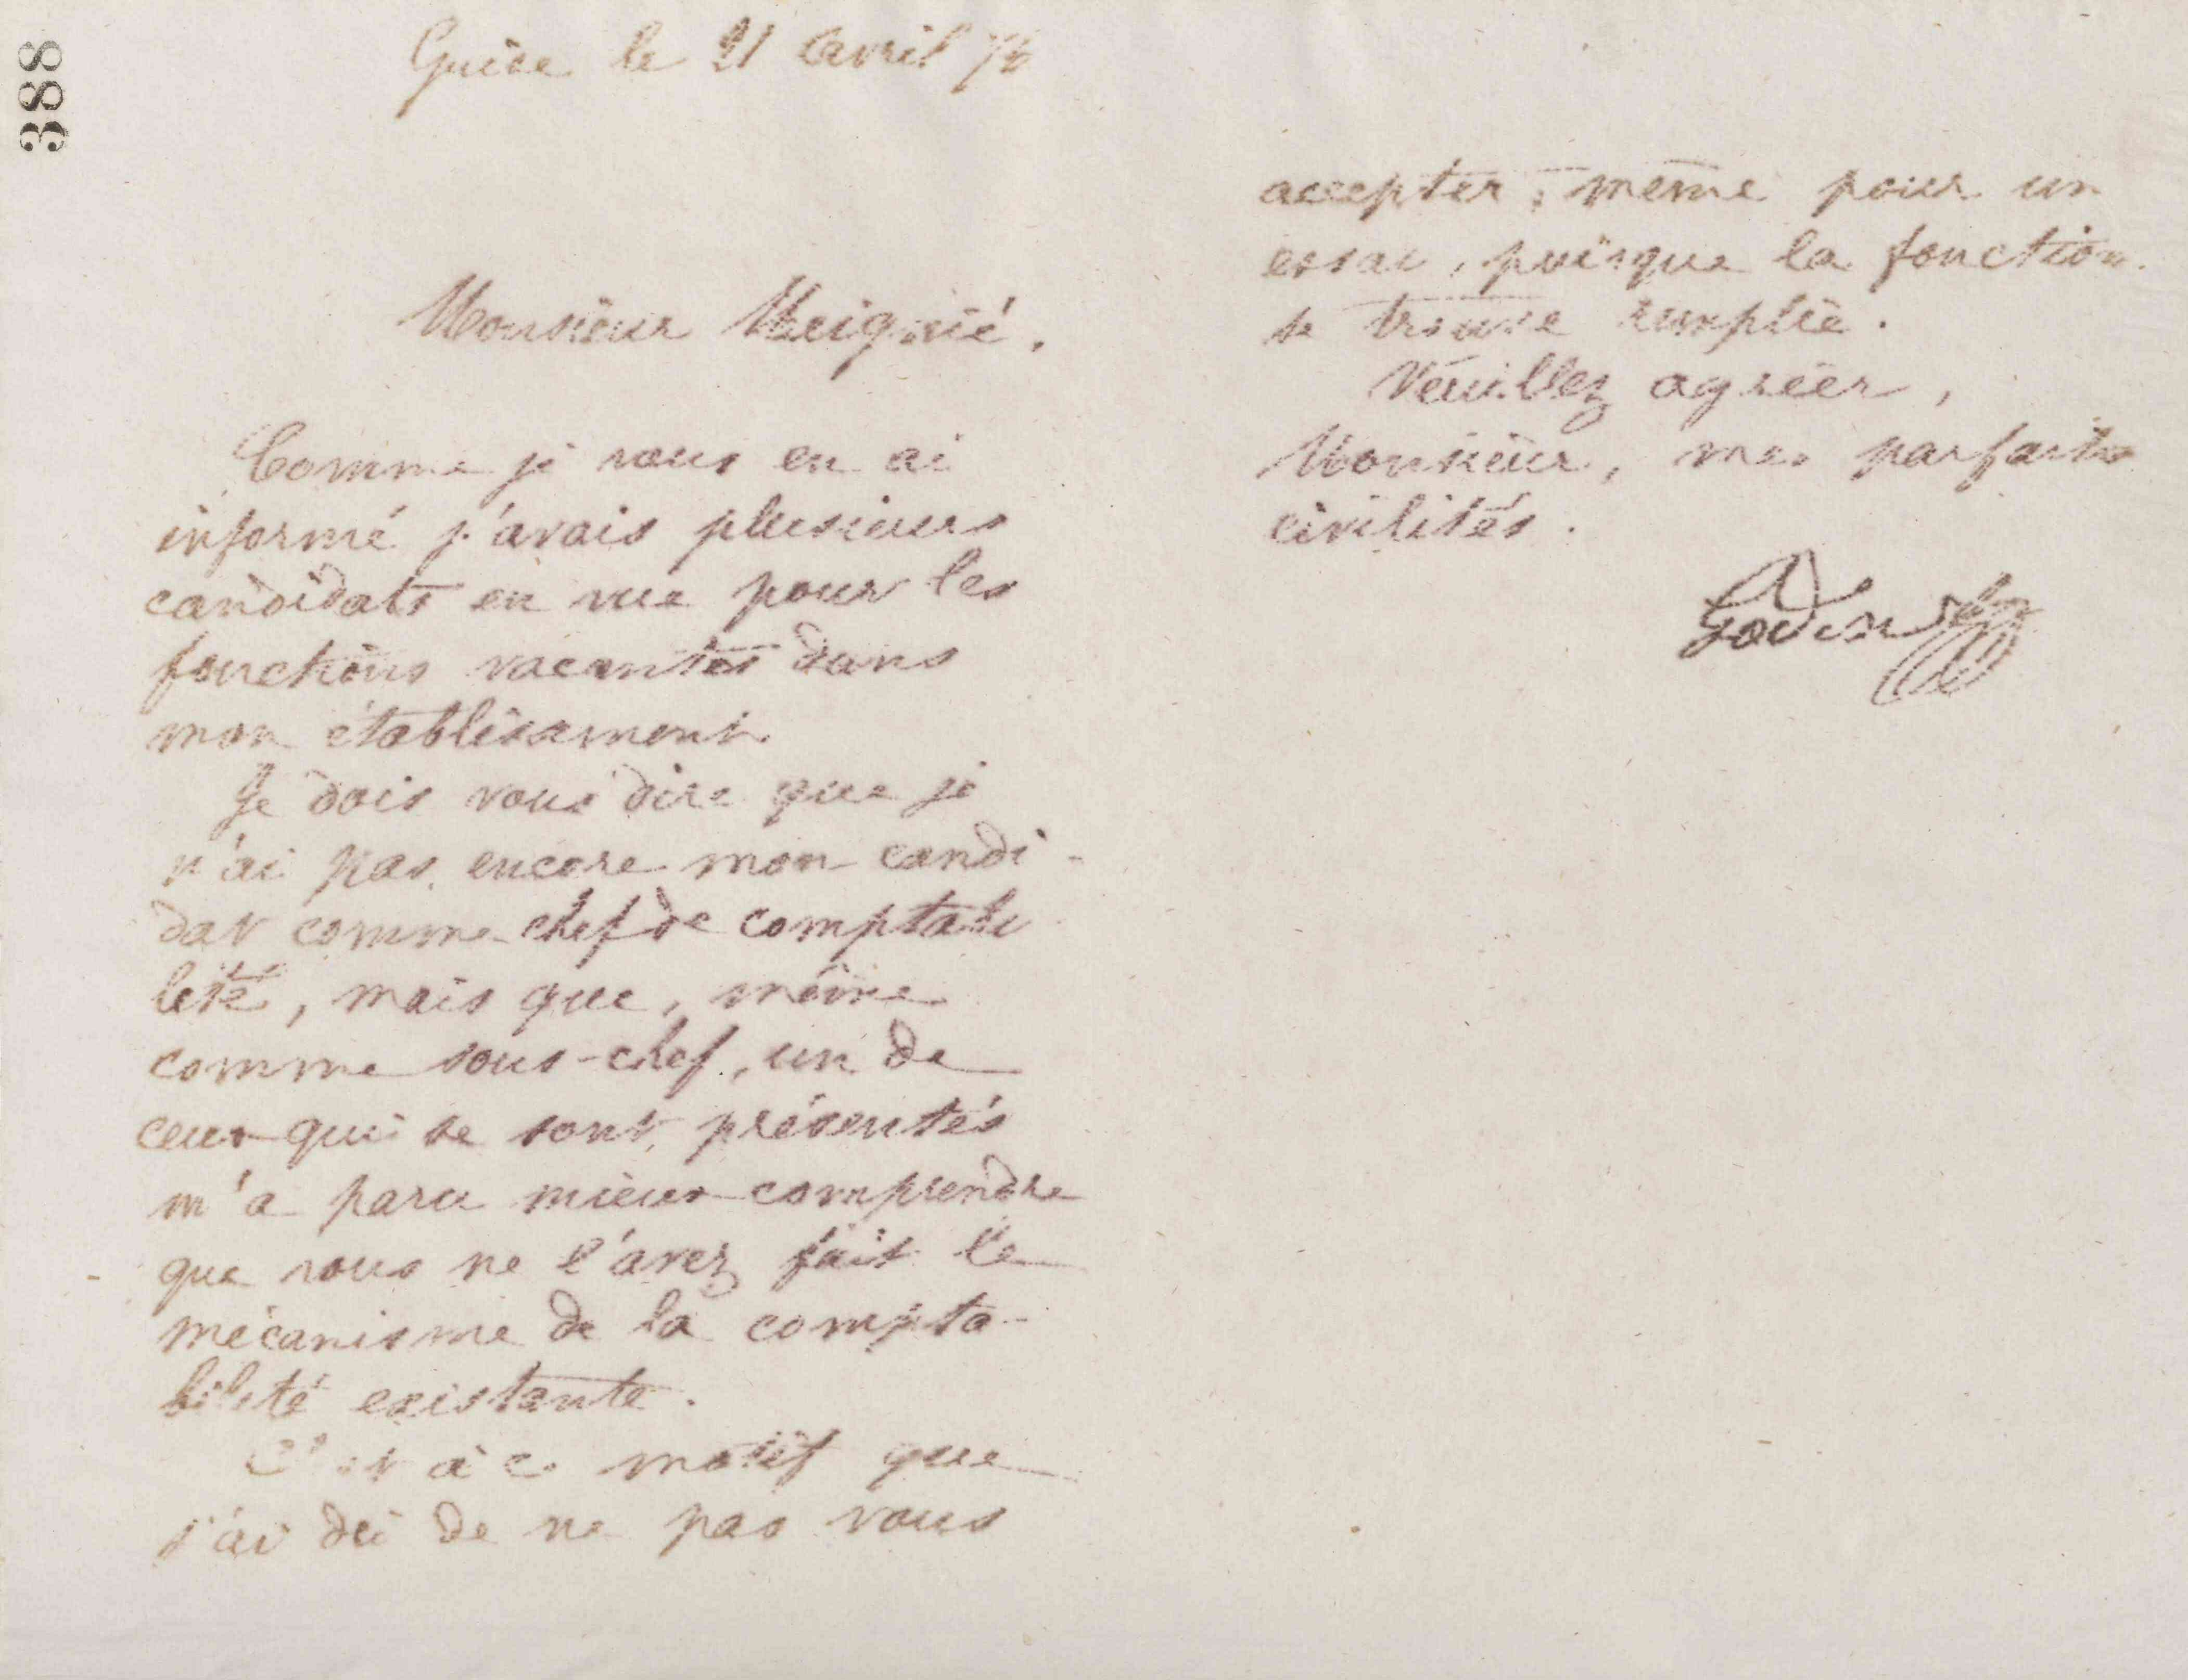 388
Guise le 21 avril 76
Monsieur
Comme je vous en ai
informé j'avais plusieurs
candidats en vue pour les
fonctions vacantes dans
mon établissement.
Je dois vous dire que je
n'ai pas encore mon candi-
dat comme chef de comptabi
lité, mais que, même
comme sous-chef, un de
ceux qui se sont présentés
m'a paru mieux comprendre
que vous ne l'avez fait le
mécanisme de la compta-
bilité existante.
C'est à ce motif que
j'ai dû de ne pas vous
accepter, même pour un
essai, puisque la fonction
se trouve remplie.
Veuillez agréer,
Monsieur, mes parfaites
civilités.
Godin